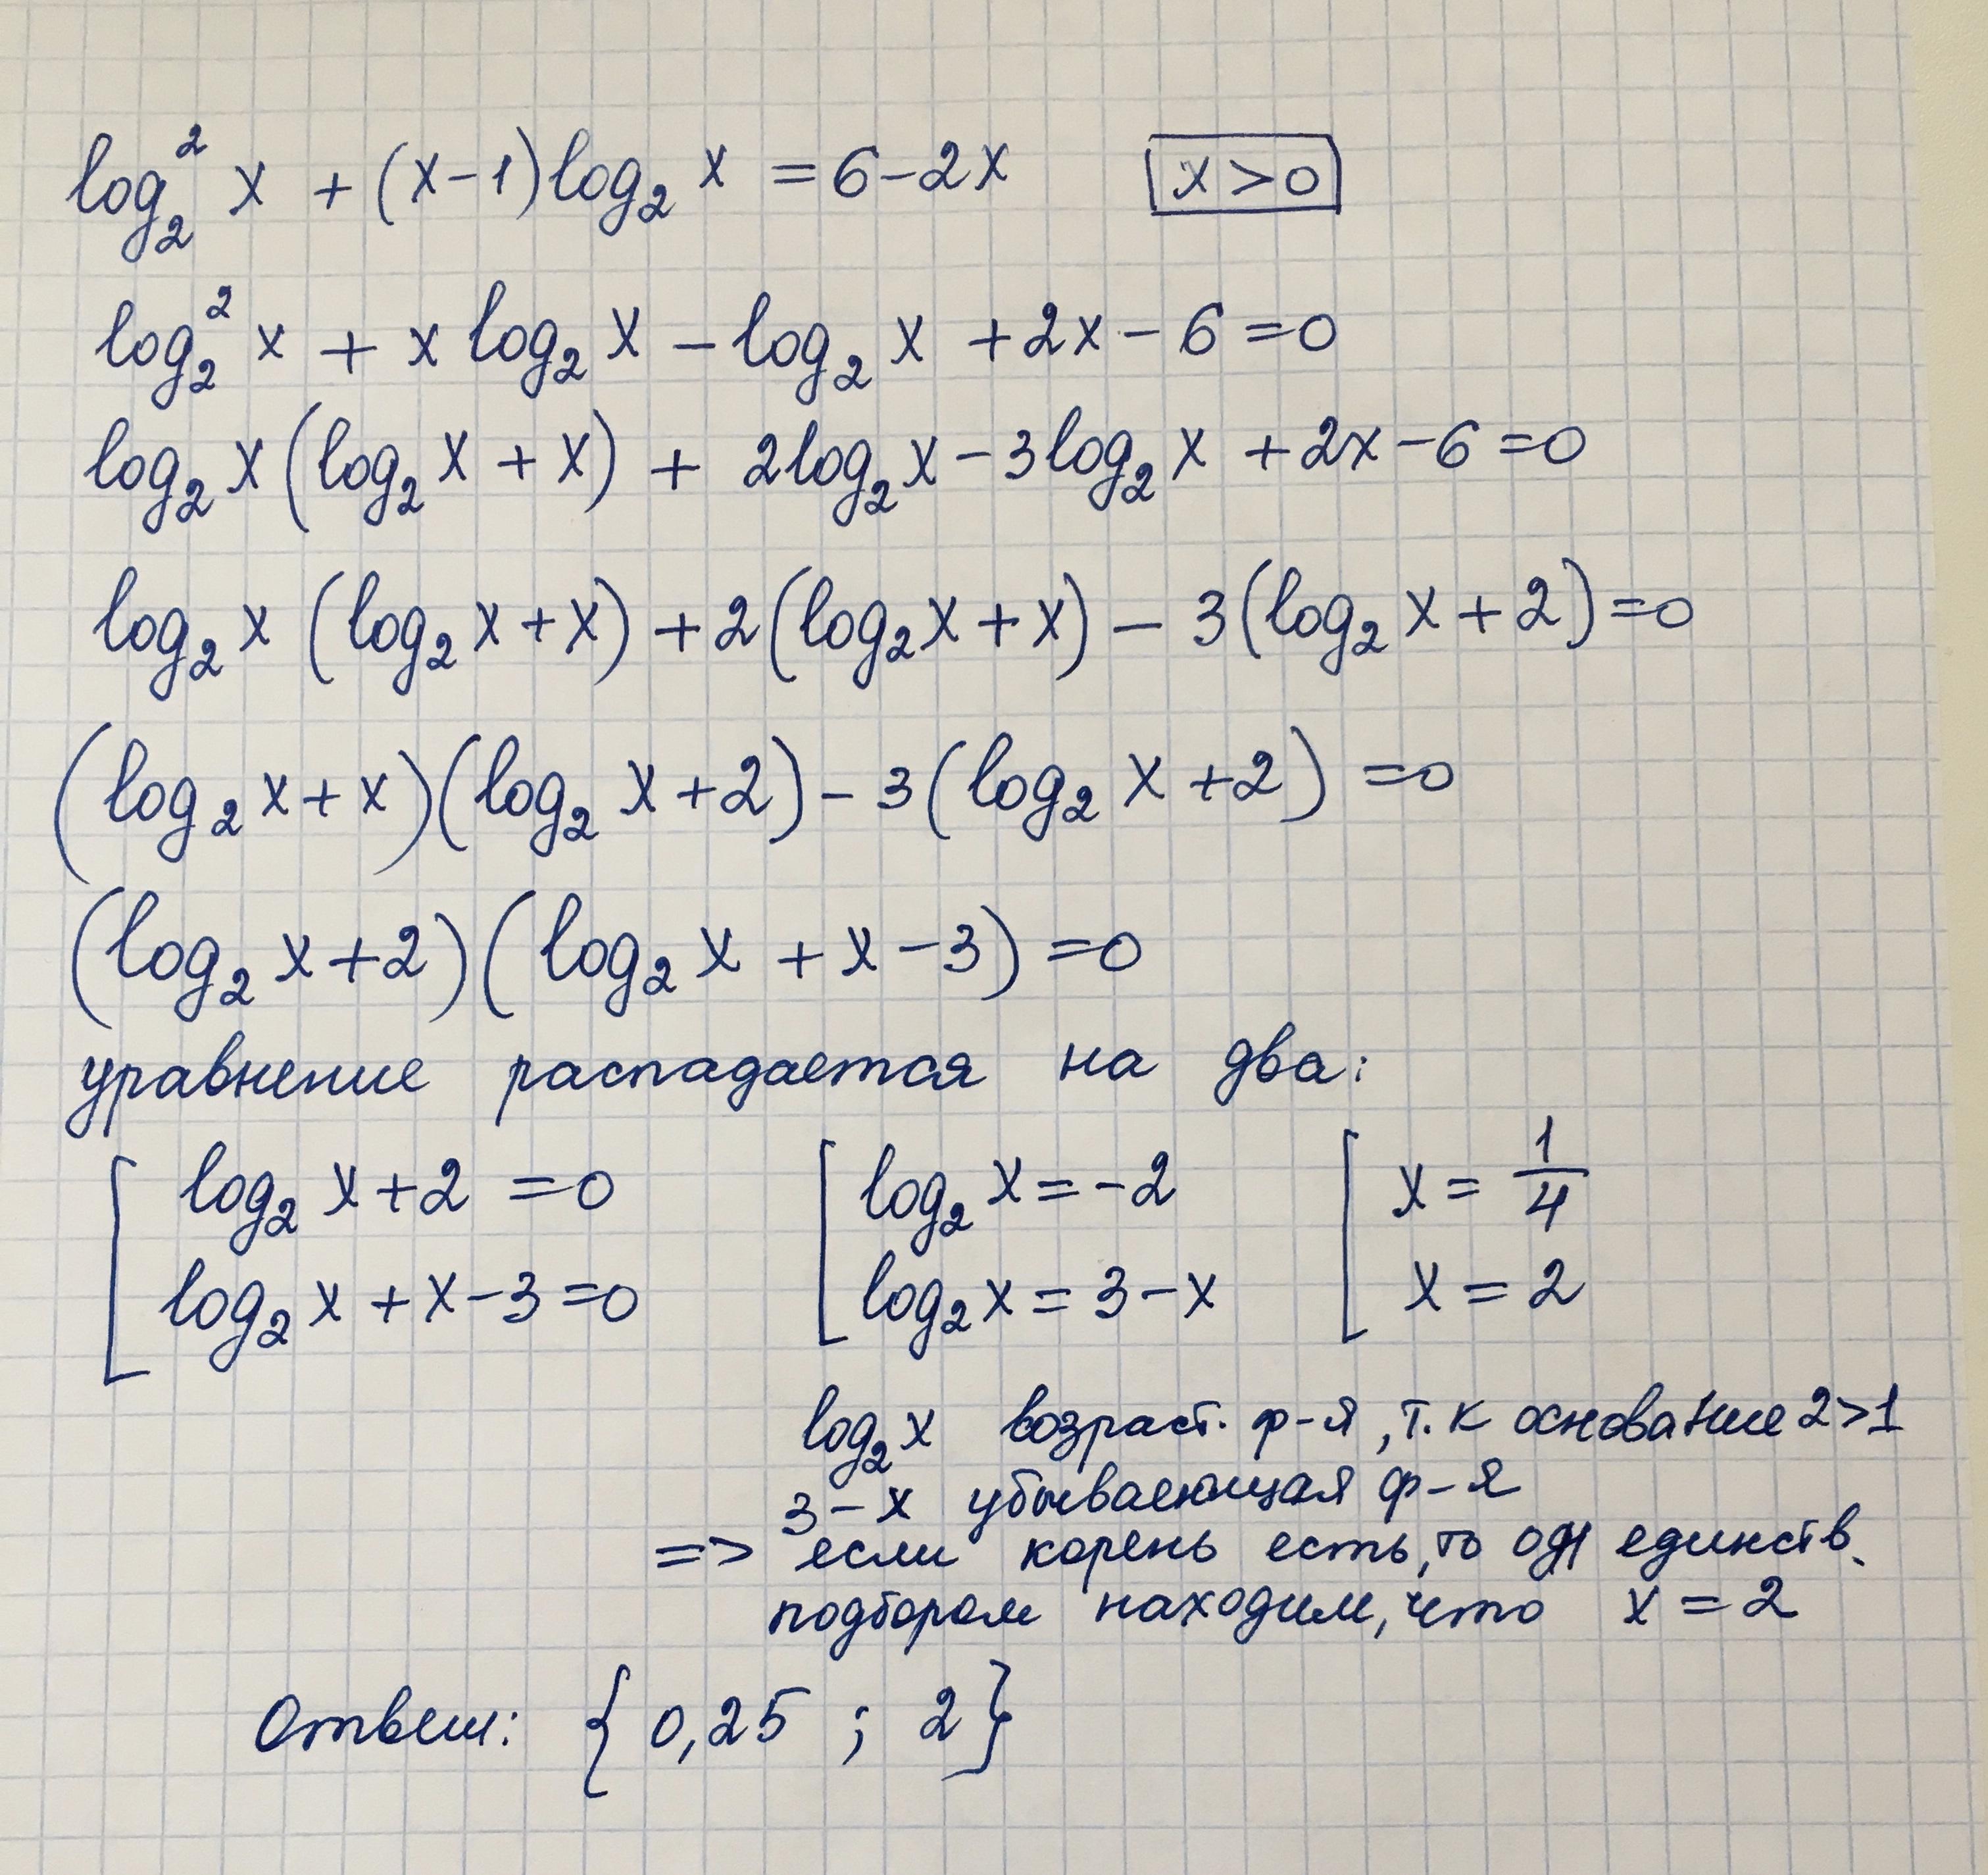 log₂² x + (x-1)log₂ x = 6-2x x>0
log₂² x + x log₂ x - log₂ x + 2x - 6 = 0
log₂ x (log₂ x + x) + 2log₂ x - 3log₂ x + 2x - 6 = 0
log₂ x (log₂ x + x) + 2(log₂ x + x) - 3(log₂ x + 2) = 0
(log₂ x + x)(log₂ x + 2) - 3(log₂ x + 2) = 0
(log₂ x + 2)(log₂ x + x - 3) = 0
уравнение распадается на два:
[ log₂ x + 2 = 0 [ log₂ x = -2 [ x = 1/4
log₂ x + x - 3 = 0 log₂ x = 3 - x x = 2
log₂ x возраст. ф-я, т.к основание 2>1
3 - x убывающая ф-я
=> если корень есть, то единств.
подбором находим, что x = 2
Ответ: { 0,25 ; 2 }